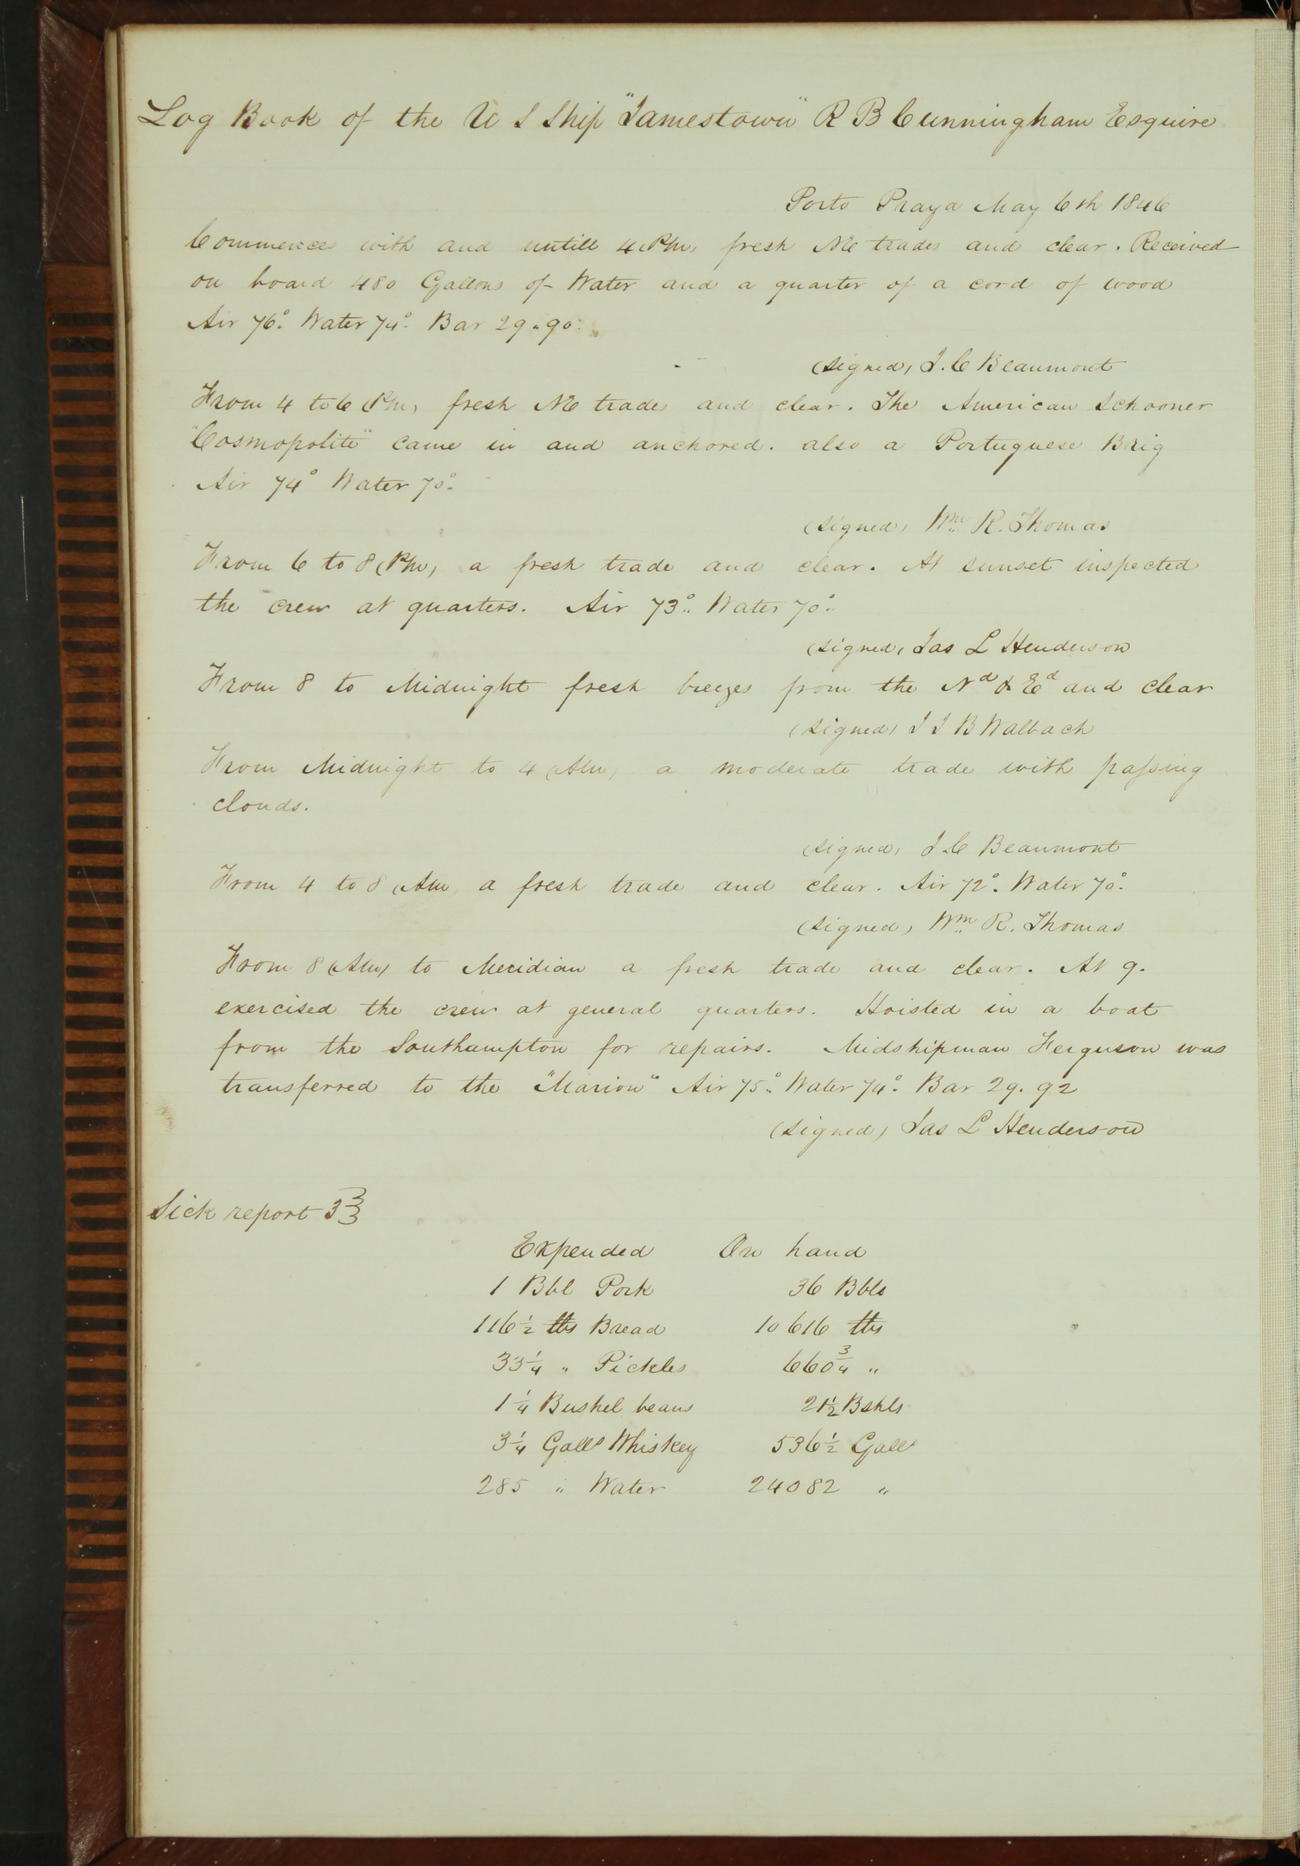 Log Book of the U S Ship "Jamestown" R B Cunningham Esquire
Porto Praya May 6th 1846
Commences with and untill 4 (Pm) fresh NE trades and clear. Received
on board 480 Gallons of Water and a quarter of a cord of wood
Air 76° Water 74° Bar 29.90.
(signed) J. C Beaumont
From 4 to 6 (Pm) fresh NE trades and clear. The American Schooner
"Cosmopolite" came in and anchored. also a Portuguese Brig
Air 74° Water 70°
(signed) Wm R. Thomas
From 6 to 8 (Pm) a fresh trade and clear. At sunset inspected
the crew at quarters. Air 73° Water 70°
(signed) Jas L Henderson
From 8 to Midnight fresh breezes from the Nd & Ed and clear
(signed) J J B Walbach
From Midnight to 4 (Am) a moderate trade with passing
clouds.
(signed) J. C Beaumont
From 4 to 8 (Am) a fresh trade and clear. Air 72°. Water 70°.
(signed) Wm R. Thomas
From 8 (Am) to Meridian a fresh trade and clear. At 9.
exercised the crew at general quarters. Hoisted in a boat
from the Southampton for repairs. Midshipman Ferguson was
transferred to the "Marion" Air 75° Water 74° Bar 29.92
(signed) Jas L Henderson
Sick report 3 3/3
Expended On hand
1 Bbl Pork 36 Bbls
116 1/2 lbs Bread 10616 lbs
33 1/4 " Pickles 660 3/4 "
1 1/4 Bushel beans 21 1/2 Bshls
3 1/4 Galls Whiskey 536 1/2 Galls
285 " Water 24082 "